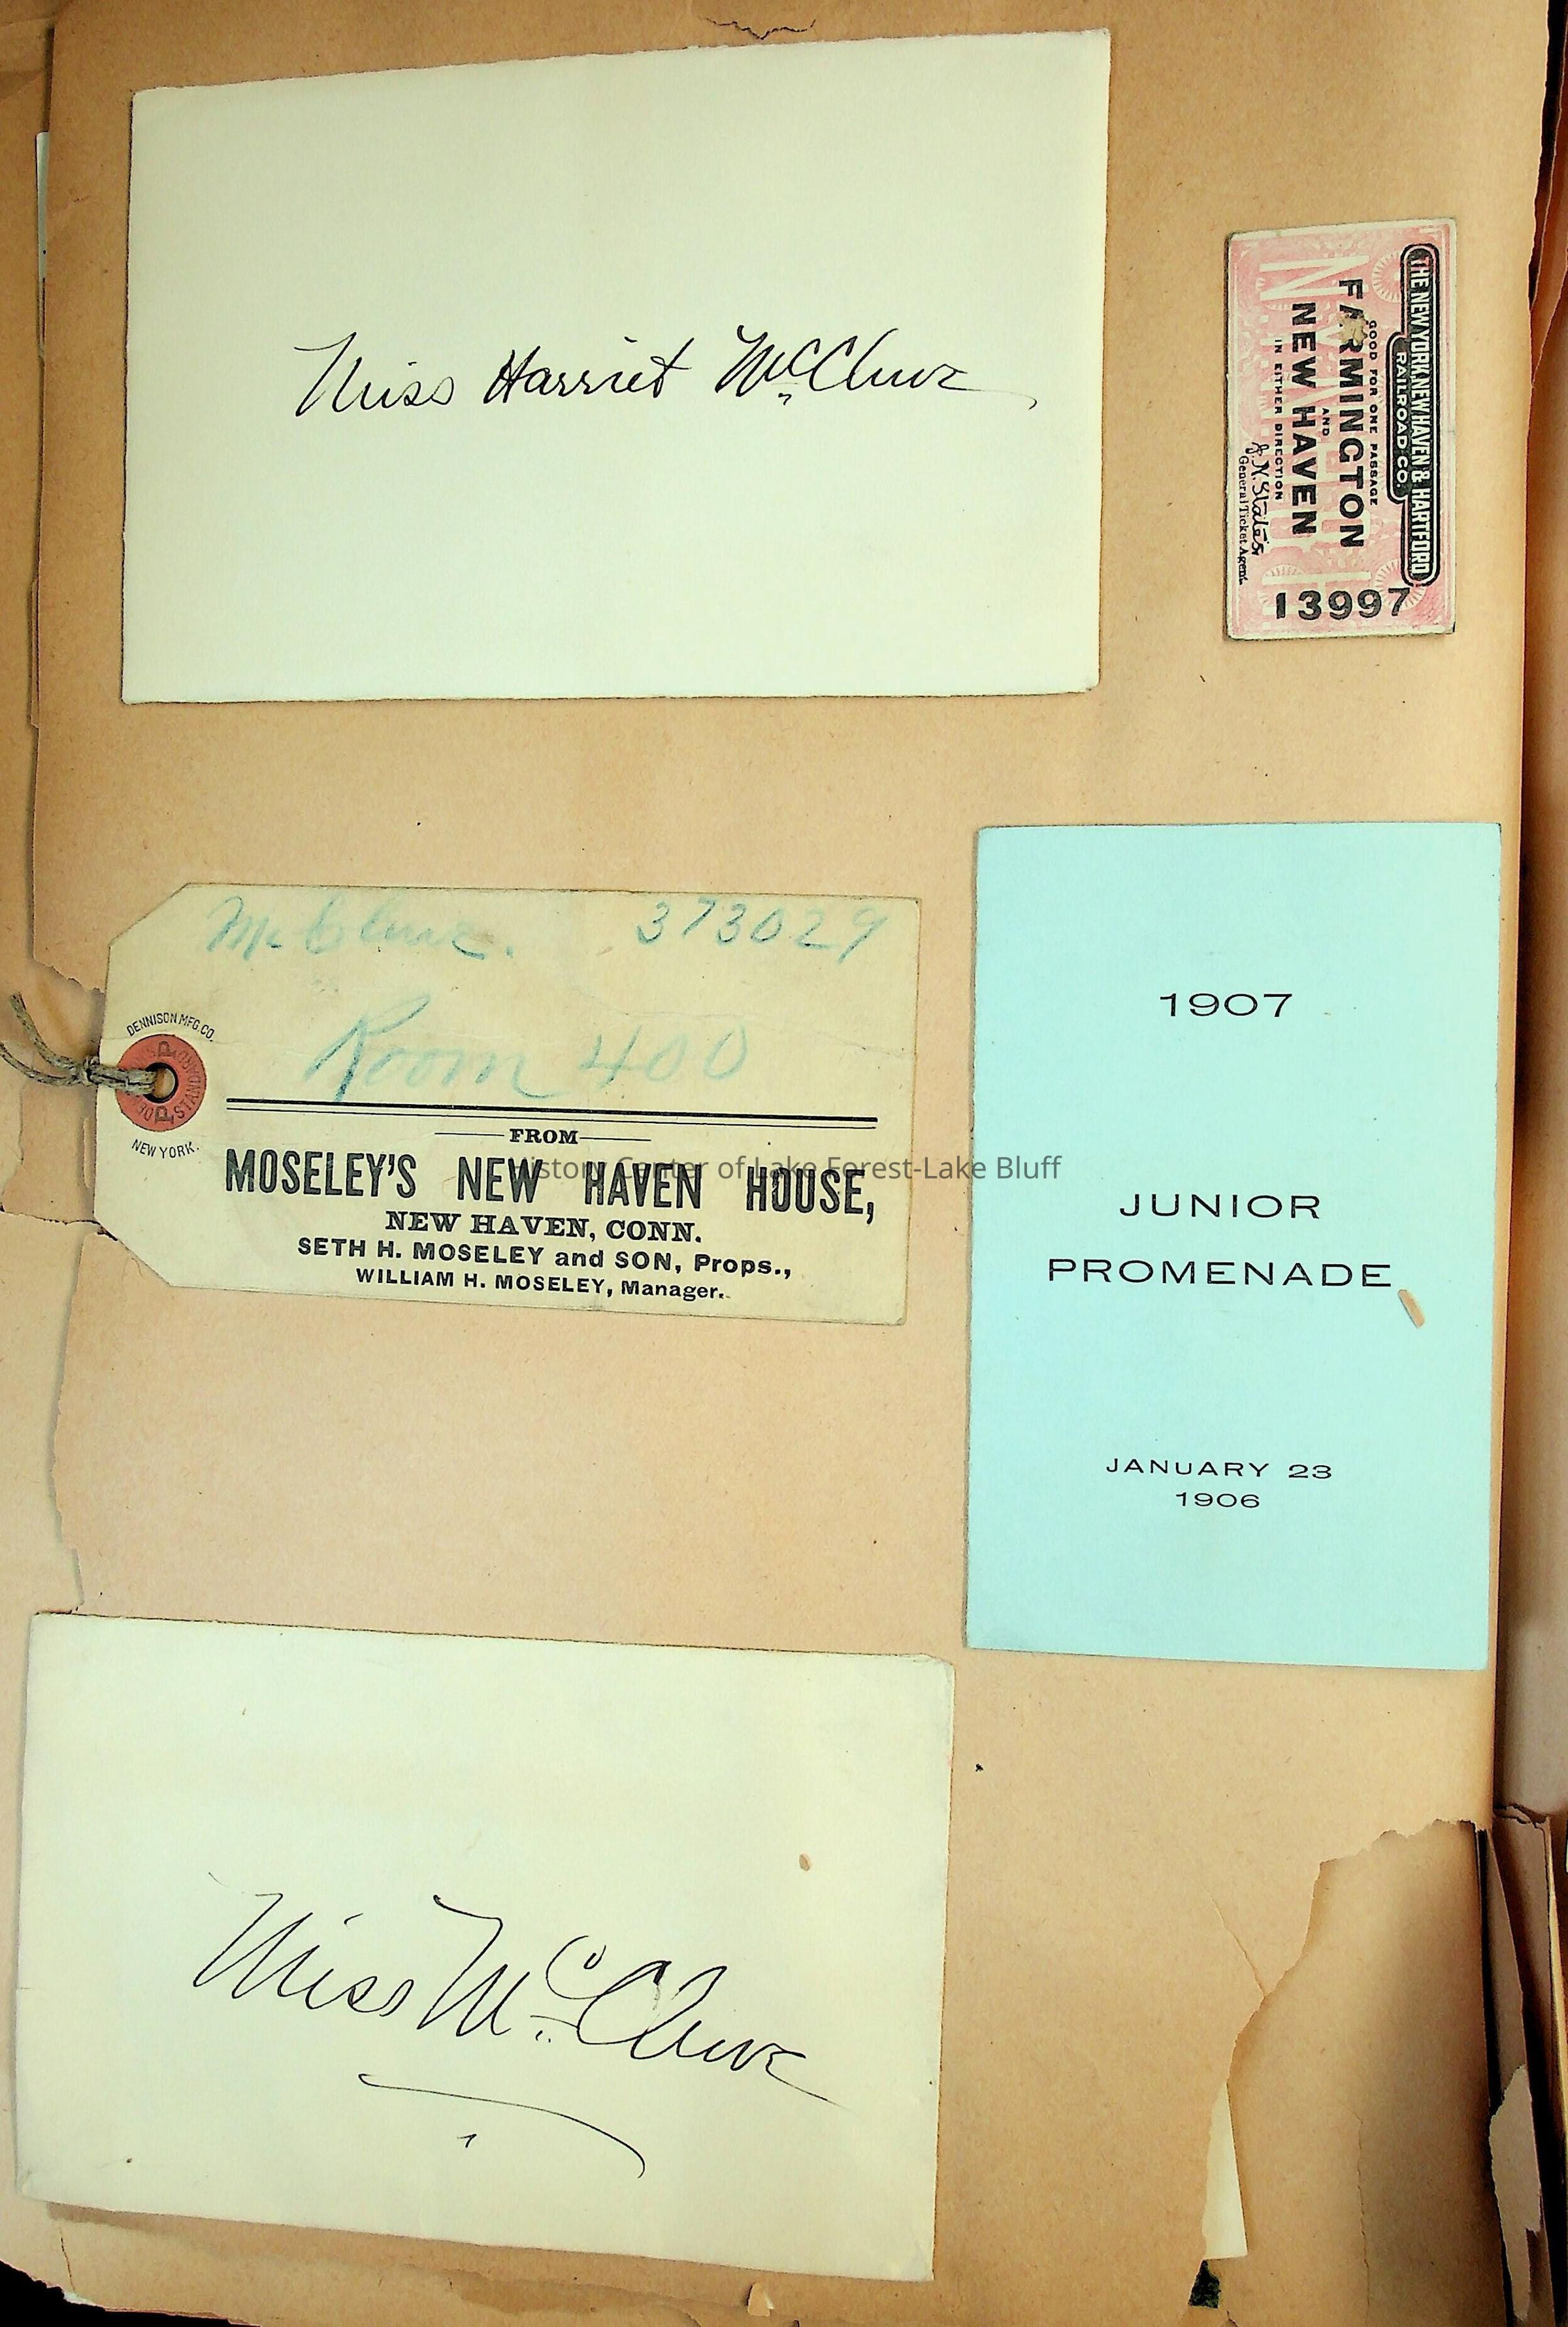 Miss Harriet McClure
THE NEW YORK, NEW HAVEN & HARTFORD
RAILROAD CO.
GOOD FOR ONE PASSAGE
FARMINGTON
AND
NEW HAVEN
IN EITHER DIRECTION
General Ticket Agent.
13997
McClure. 373029
Room 400
DENNISON MFG. CO.
NEW YORK.
FROM
MOSELEY'S NEW HAVEN HOUSE,
NEW HAVEN, CONN.
SETH H. MOSELEY and SON, Props.,
WILLIAM H. MOSELEY, Manager.
History Center of Lake Forest-Lake Bluff
1907
JUNIOR
PROMENADE
JANUARY 23
1906
Miss McClure